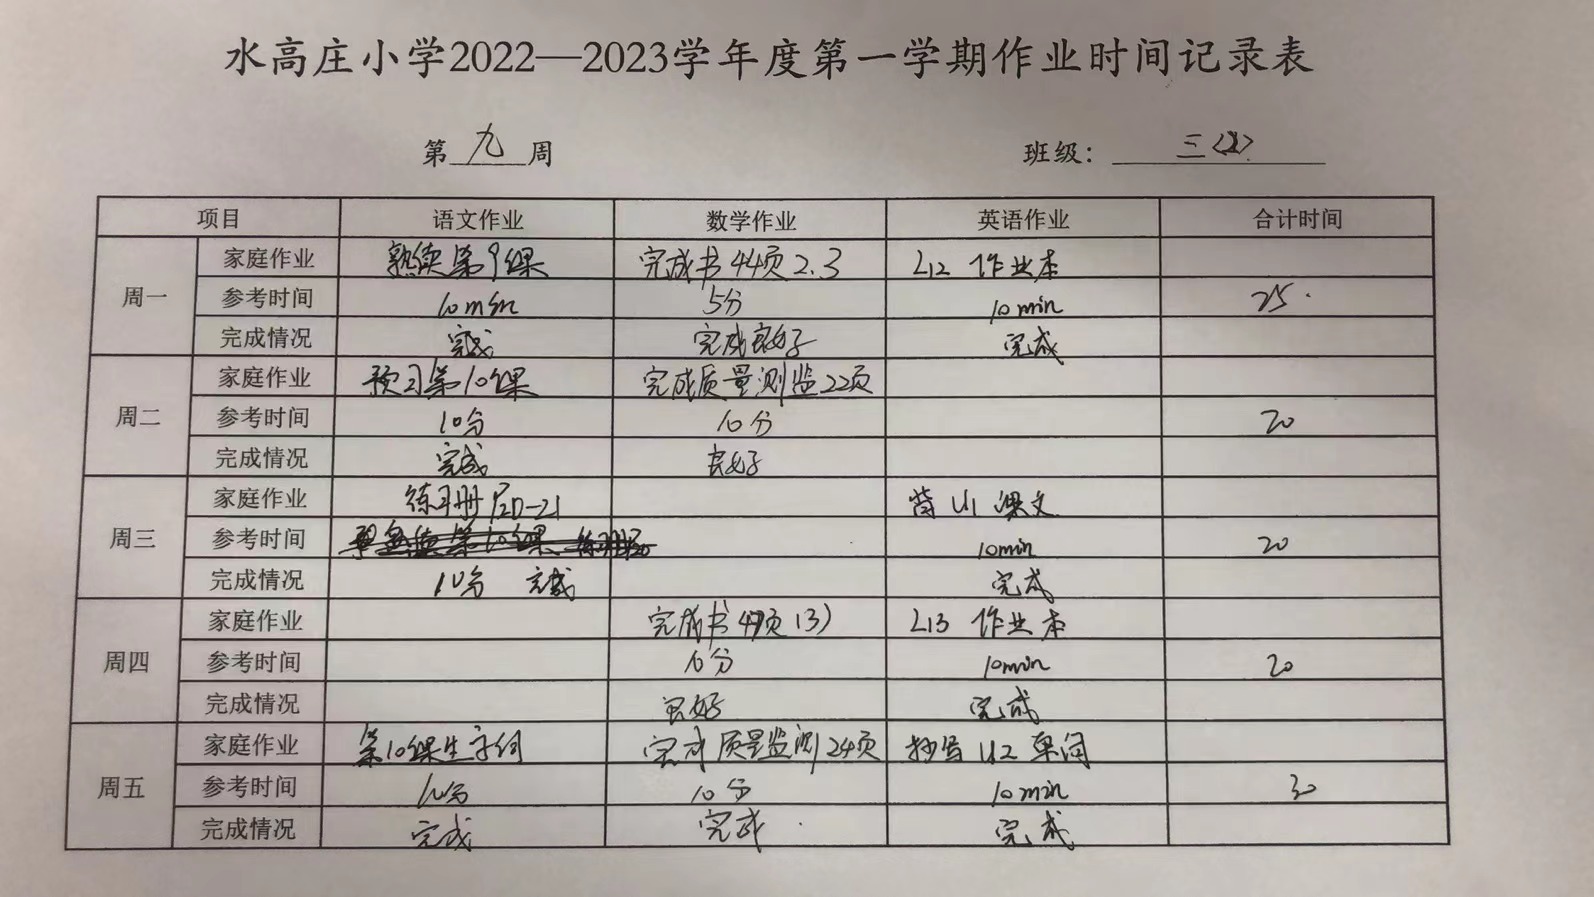 水高庄小学2022—2023学年度第一学期作业时间记录表
第九周 班级：三
项目 语文作业 数学作业 英语作业 合计时间
周一
家庭作业 熟读第9课 完成书44页2.3 L12 作业本
参考时间 10min 5分 10min 25.
完成情况 完成 完成良好 完成
周二
家庭作业 预习第10课 完成质量测监22页
参考时间 10分 10分 20
完成情况 完成 良好
周三
家庭作业 练习册P20-21 背U1课文
参考时间 10min 20
完成情况 10分 完成 完成
周四
家庭作业 完成书49页13) L13 作业本
参考时间 10分 10min 20
完成情况 良好 完成
周五
家庭作业 第10课生字词 完成质量监测24页 抄写U2单词
参考时间 10分 10分 10min 30
完成情况 完成 完成. 完成